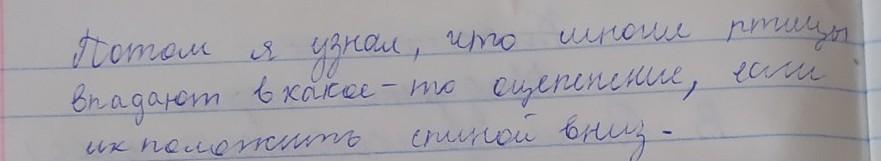 Потом я узнал, что многие птицы
впадают в какое-то оцепенение, если
их положить спиной вниз.